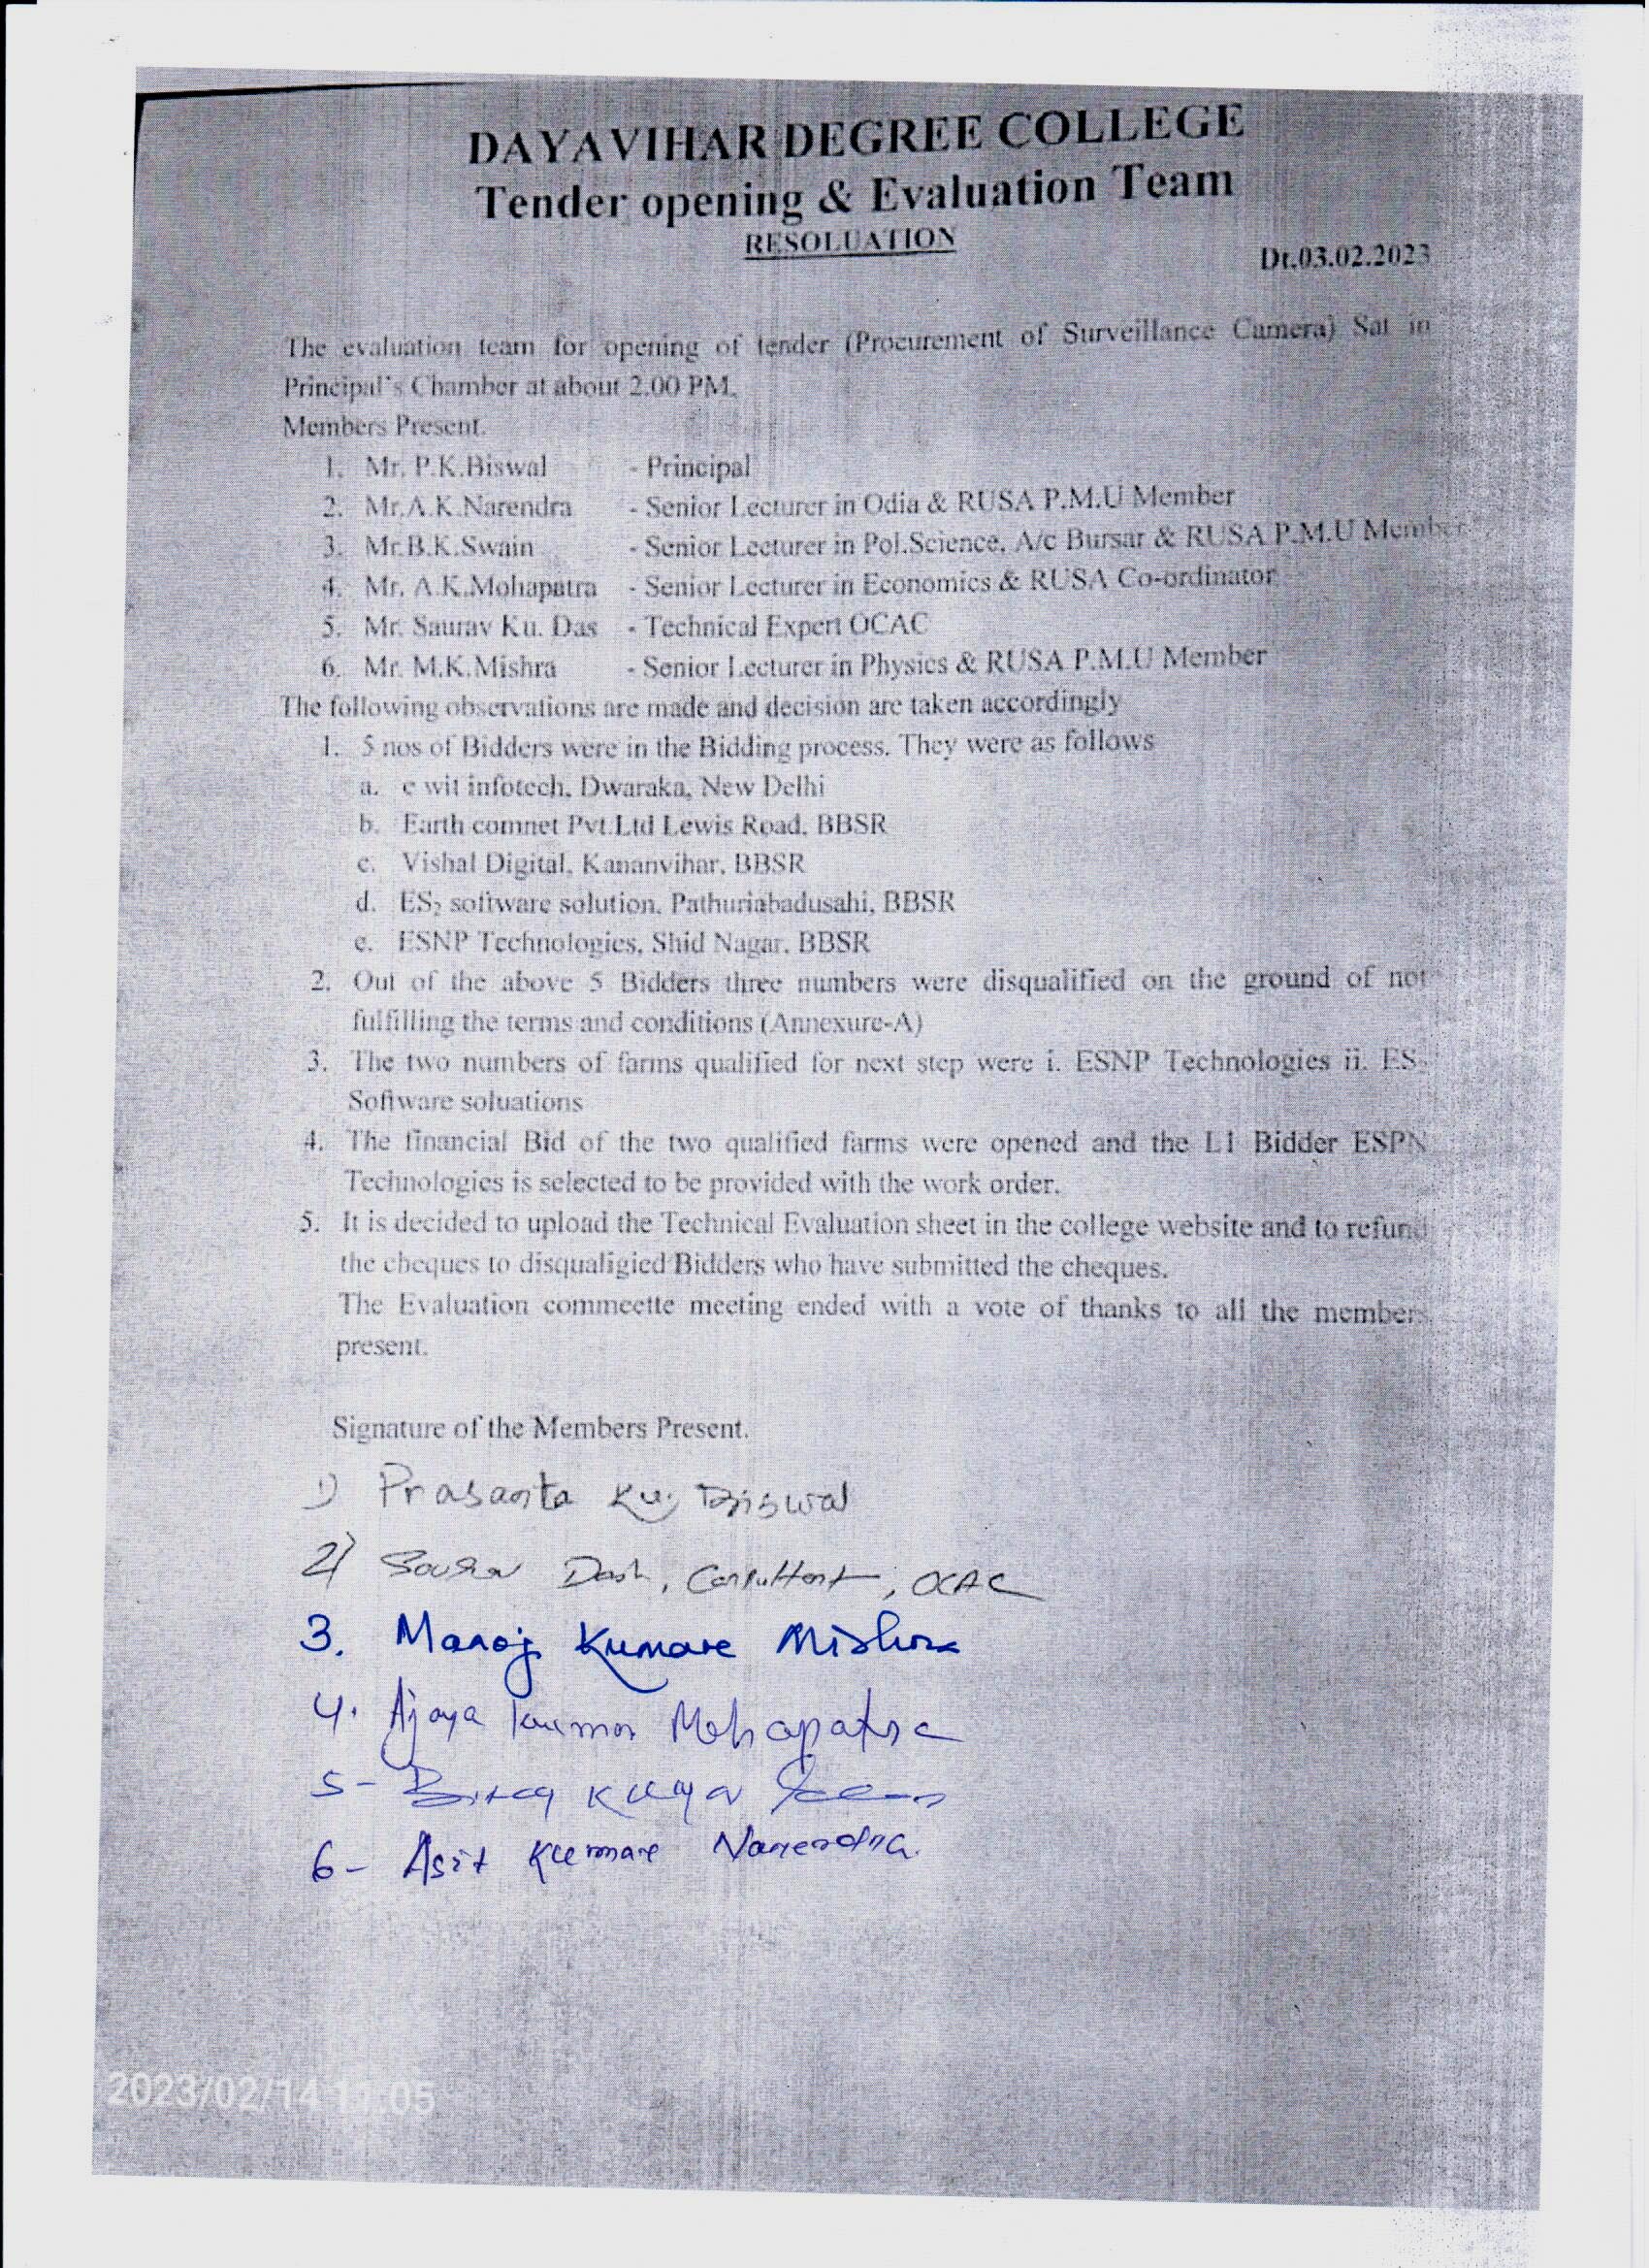 DAYAVIHAR DEGREE COLLEGE
Tender opening & Evaluation Team
RESOLUATION
Dt.03.02.2023
The evaluation team for opening of tender (Procurement of Surveillance Camera) Sat in
Principal's Chamber at about 2.00 PM.
Members Present.
1. Mr. P.K.Biswal - Principal
2. Mr.A.K.Narendra - Senior Lecturer in Odia & RUSA P.M.U Member
3. Mr.B.K.Swain - Senior Lecturer in Pol.Science, A/c Bursar & RUSA P.M.U Member
4. Mr. A.K.Mohapatra - Senior Lecturer in Economics & RUSA Co-ordinator
5. Mr. Saurav Ku. Das - Technical Expert OCAC
6. Mr. M.K.Mishra - Senior Lecturer in Physics & RUSA P.M.U Member
The following observations are made and decision are taken accordingly
1. 5 nos of Bidders were in the Bidding process. They were as follows
a. e wit infotech, Dwaraka, New Delhi
b. Earth comnet Pvt.Ltd Lewis Road, BBSR
c. Vishal Digital, Kananvihar, BBSR
d. ES₂ software solution, Pathuriabadusahi, BBSR
e. ESNP Technologies, Shid Nagar, BBSR
2. Out of the above 5 Bidders three numbers were disqualified on the ground of not
fulfilling the terms and conditions (Annexure-A)
3. The two numbers of farms qualified for next step were i. ESNP Technologies ii. ES₂
Software soluations
4. The financial Bid of the two qualified farms were opened and the L1 Bidder ESPN
Technologies is selected to be provided with the work order.
5. It is decided to upload the Technical Evaluation sheet in the college website and to refund
the cheques to disqualigied Bidders who have submitted the cheques.
The Evaluation commeette meeting ended with a vote of thanks to all the members
present.
Signature of the Members Present.
1) Prasanta Ku; Biswal
2) Sourav Dash, Consultant, OCAC
3. Manoj Kumar Mishra
4. Ajaya Kumar Mohapatra
5- Kumar
6- Asit Kumar Narendra.
2023/02/14 :05